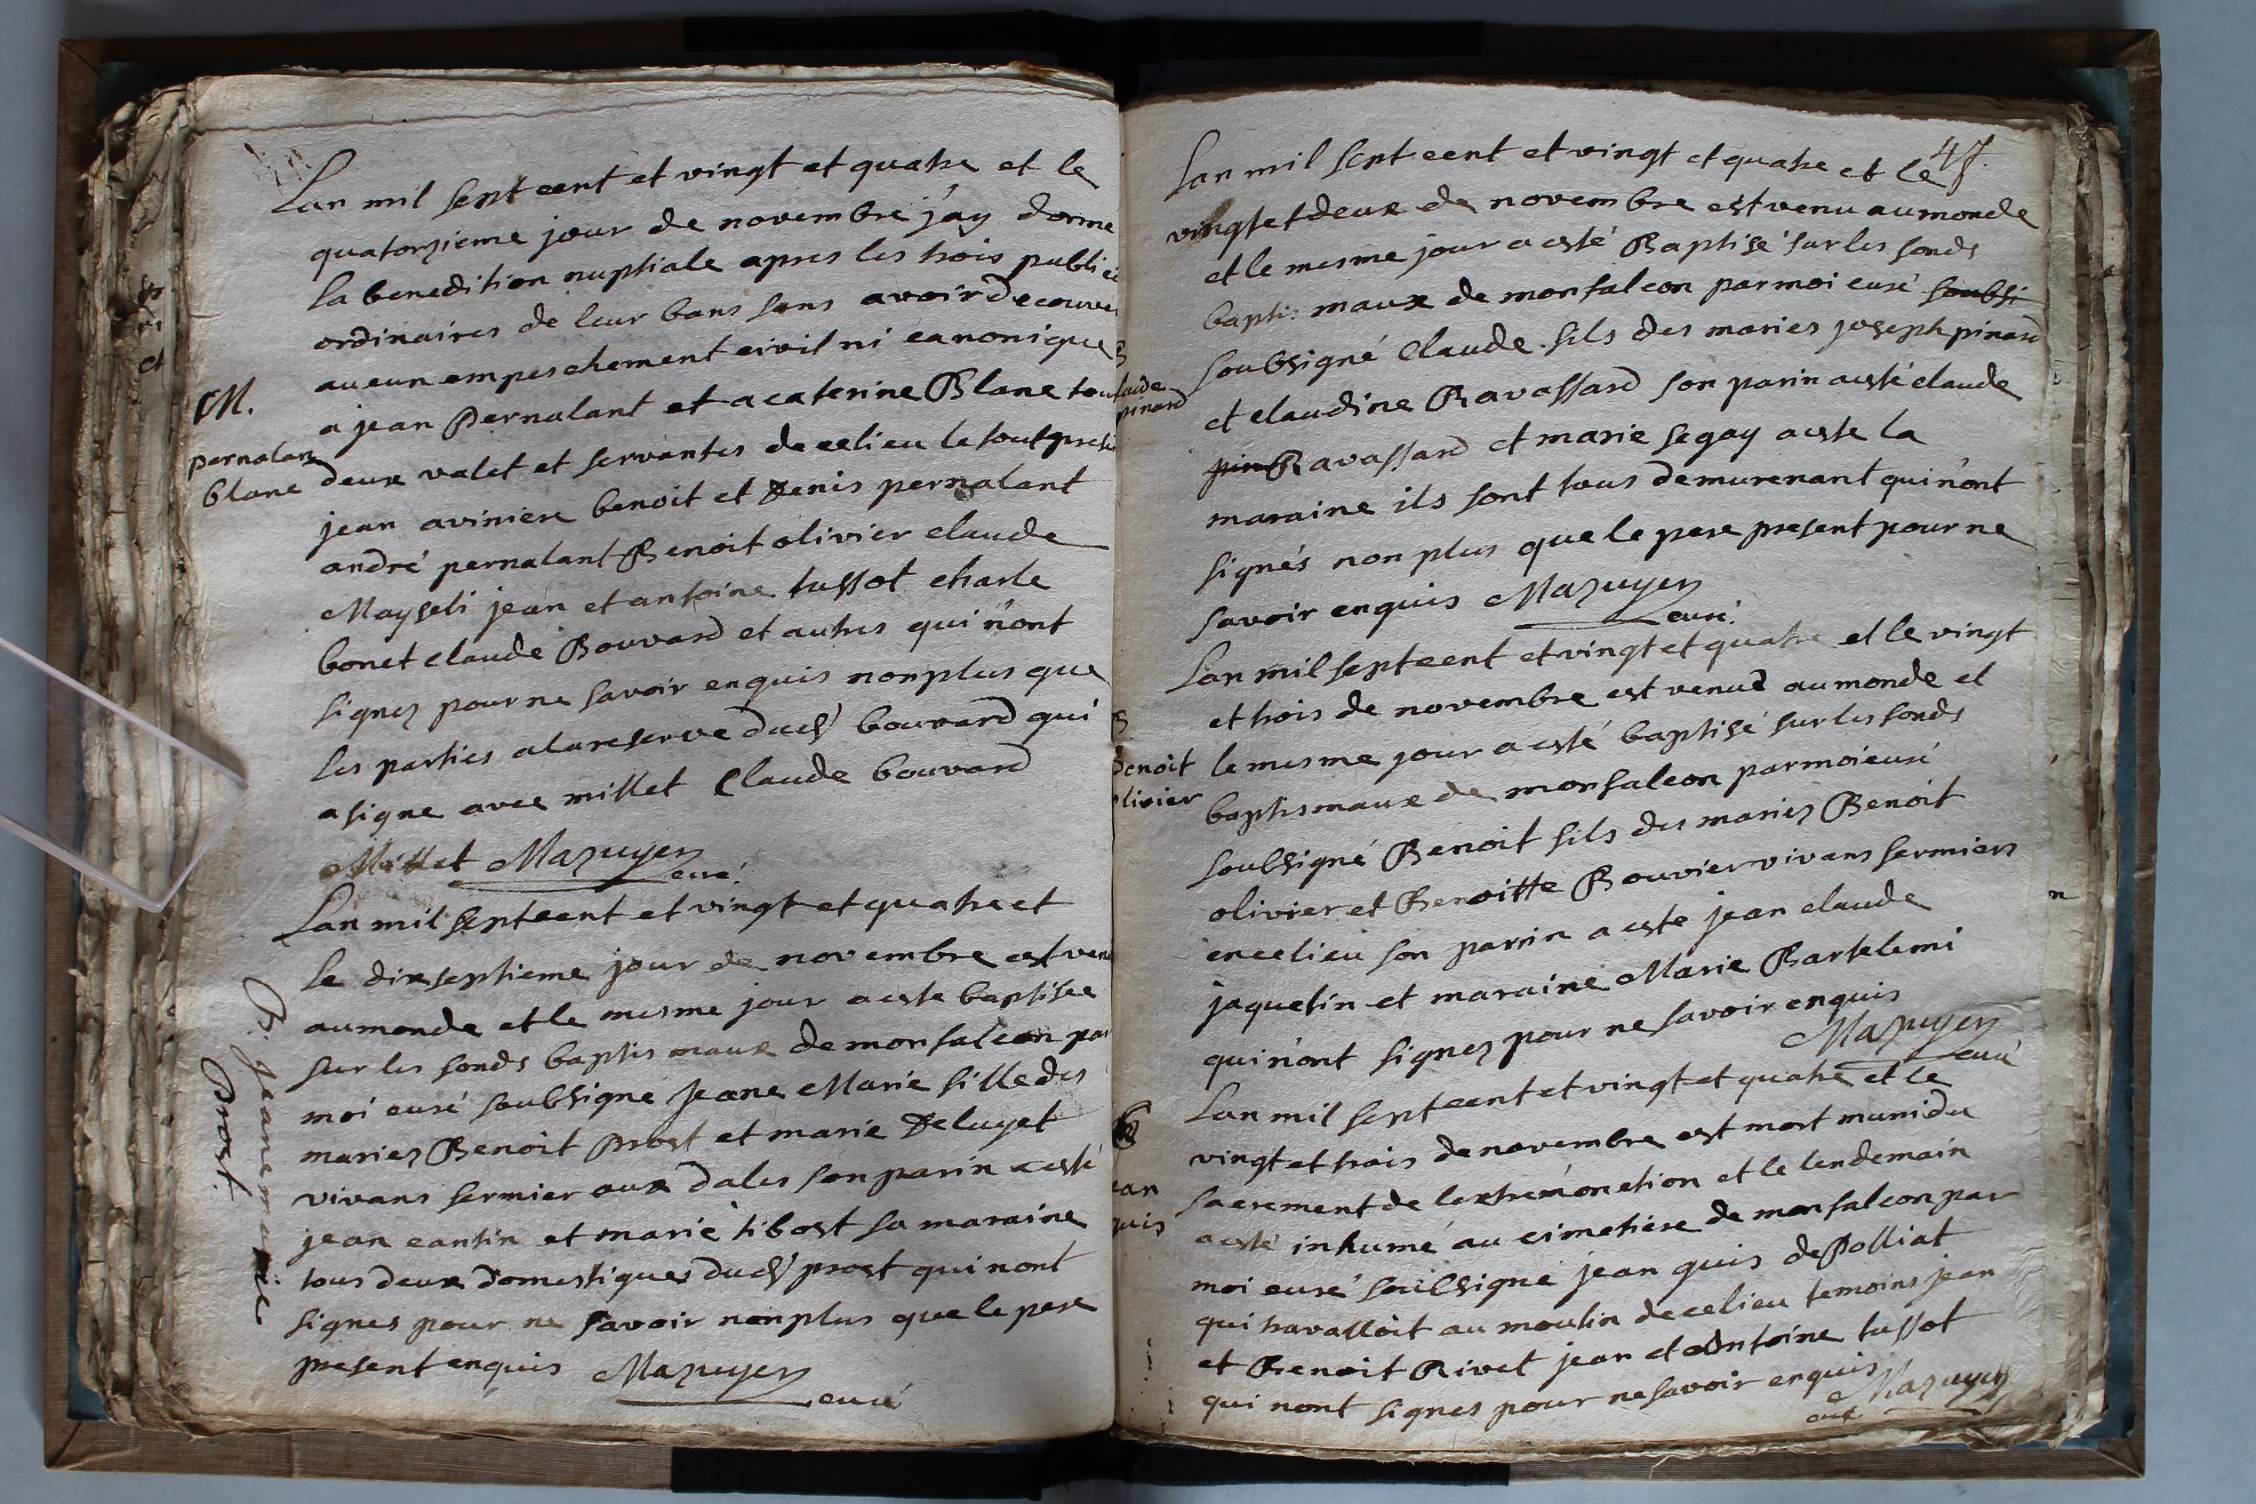 Lan mil sept cent et vingt et quatre et le
quatorzieme jour de novembre j'ay donne
la benedition nuptiale apres les trois publi
ordinaires de leur bans sans avoir decouve
aucun empeschement civil ni canonique
M.
a jean Pernalant et a caterine Blanc tou
pernalan
blanc
deux valet et servantes de ce lieu le tout prese
jean aviniere benoit et denis pernalant
andré pernalant Benoit olivier claude
Mayseli jean et antoine tussot charle
bonet claude Bouvard et autres qui n'ont
signez pour ne savoir enquis non plus que
les parties a la reserve dud' bouvard qui
a signe avec millet Claude bouvard
Millet Mazuyer
curé
Lan mil sept cent et vingt et quatre et
le dixseptieme jour de novembre est ven
au monde et le mesme jour a este baptisee
sur les fonds baptis maux de monfalcon par
moi curé soubsigné Jeane Marie fille des
mariez Benoit Prost et marie Deluyet
vivans fermier aux dales son parin a esté
jean cantin et marie tibost sa maraine
tous deux domestiques dud' prost qui n'ont
signes pour ne savoir non plus que le pere
present enquis Mazuyer
curé
B. Jeane marie
Prost
47.
Lan mil sept cent et vingt et quatre et le
vingt et deux de novembre est venu au monde
et le mesme jour a esté Baptisé sur les fonds
baptis maux de monfalcon par moi curé soubsi
B
laude
pinard
soubsigné Claude fils des maries joseph pinard
et claudine Ravassard son parin a esté claude
pin Ravassard et marie segay a este la
maraine ils sont tous demurenant qui n'ont
signés non plus que le pere present pour ne
savoir enquis Mazuyer
curé.
Lan mil sept cent et vingt et quatre et le vingt
et trois de novembre est venud au monde et
B
Benoit
olivier
le mesme jour a esté baptisé sur les fonds
baptismaux de monfalcon par moi curé
soubsigné Benoit fils des mariez Benoit
olivier et Benoitte Bouvier vivans fermiers
en ce lieu son parrin a este jean claude
jaquetin et maraine Marie Bartelemi
qui n'ont signez pour ne savoir enquis
Mazuyer
curé
Lan mil sept cent et vingt et quatre et le
vingt et trois de novembre est mort muni du
ean
guis
sacrement de lextremonction et le lendemain
a esté inhumé au cimetiere de monfalcon par
moi curé soubsigné jean guis de Polliat
qui travalloit au moulin de ce lieu temoins jean
et Benoit Rivet jean et Antoine tussot
qui n'ont signes pour ne savoir enquis
Mazuyer
curé